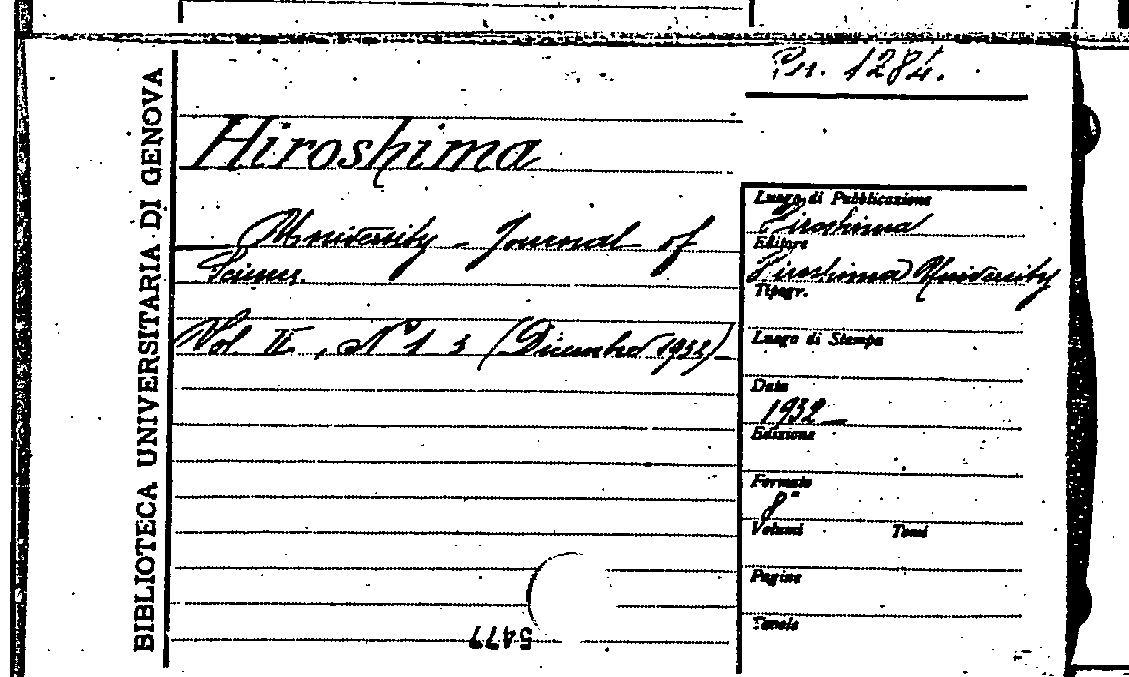 BIBLIOTECA UNIVERSITARIA DI GENOVA
Per. 1284.
Hiroshima
University - Journal of
Science.
Vol II, N° 1 3 (Dicembre 1932)
Luogo di Pubblicazione
Hiroshima
Editore
Hiroshima University
Tipogr.
Luogo di Stampa
Data
1932
Edizione
Formato
8°
Volumi Tomi
Pagine
Tavole
5477